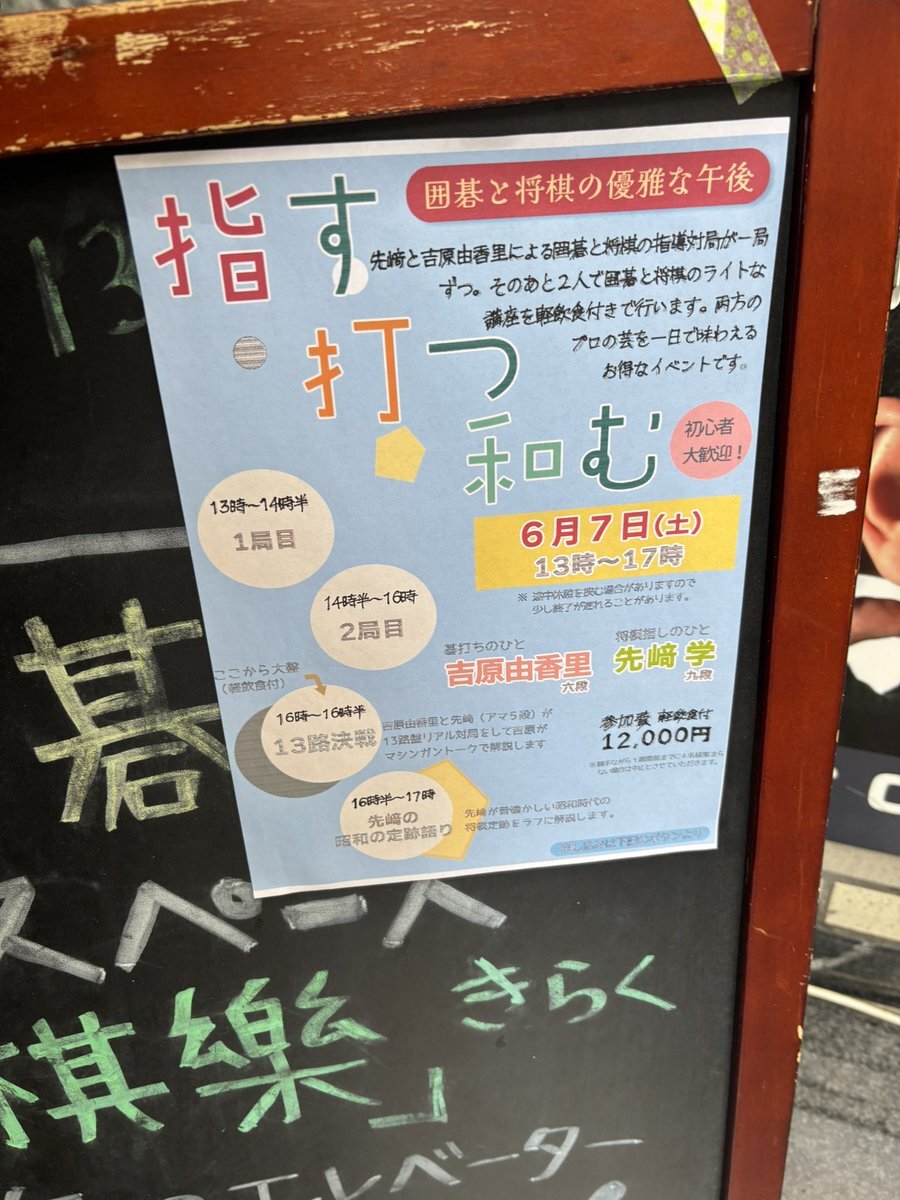 囲碁と将棋の優雅な午後
指す
打つ
和む
先崎と吉原由香里による囲碁と将棋の指導対局が一局
ずつ。そのあと2人で囲碁と将棋のライトな
講座を軽飲食付きで行います。両方の
プロの芸を一日で味わえる
お得なイベントです。
初心者
大歓迎！
6月7日(土)
13時〜17時
※ 途中休憩を挟む場合がありますので
少し終了が遅れることがあります。
13時〜14時半
1局目
14時半〜16時
2局目
碁打ちのひと
吉原由香里
六段
将棋指しのひと
先崎 学
九段
ここから大盤
（軽飲食付）
16時〜16時半
13路決戦
吉原由香里と先崎（アマ5段）が
13路盤リアル対局をして吉原が
マシンガントークで解説します
参加費 軽飲食付
12,000円
※勝手ながら1週間前までに4名様集まら
ない場合は中止とさせていただきます。
16時半〜17時
先崎の
昭和の定跡語り
先崎が昔懐かしい昭和時代の
将棋定跡をラフに解説します。
13
碁
スペース
棋樂」
きらく
エレベーター